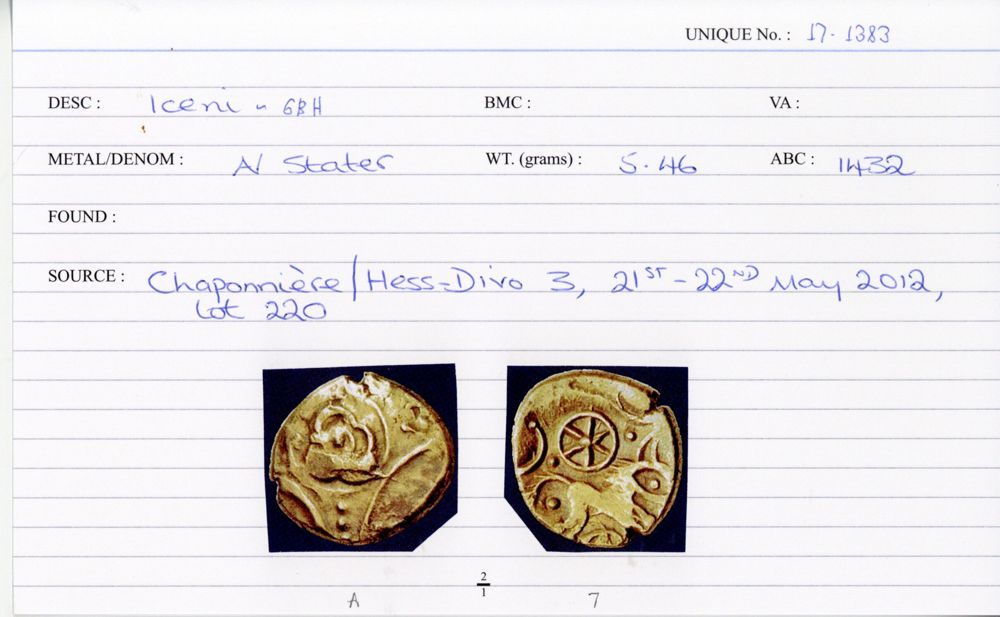 UNIQUE No. : 17. 1383
DESC : Iceni - GBH BMC : VA :
METAL/DENOM : A/ Stater WT. (grams) : 5.46 ABC : 1432
FOUND :
SOURCE : Chaponnière/Hess-Divo 3, 21ST-22ND May 2012,
Lot 220
2
1
A 7